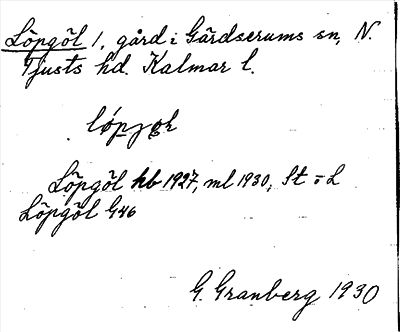 Löpgöl 1, gård i Gärdserums sn, N.
Tjusts hd. Kalmar l.
Löpgöl hb 1927, ml 1930, St = L
Löpgöl G46
G. Granberg 1930